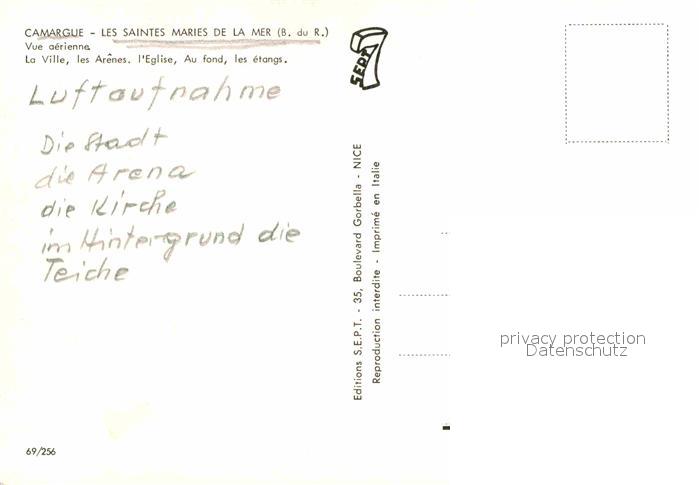 CAMARGUE - LES SAINTES MARIES DE LA MER (B. du R.)
Vue aérienne
La Ville, les Arênes. l'Eglise, Au fond, les étangs.
Luftaufnahme
Die Stadt
die Arena
die Kirche
im Hintergrund die
Teiche
69/256
SEPT
7
Editions S.E.P.T. - 35, Boulevard Gorbella - NICE
Reproduction interdite - Imprimé en Italie
privacy protection
Datenschutz